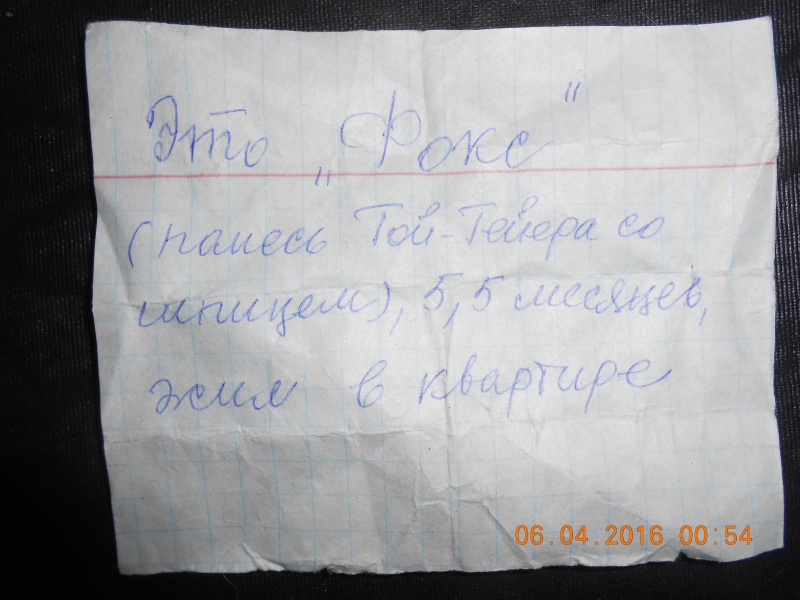 Это „Фокс"
(помесь Той-Тейера со
шпицем), 5,5 месяцев,
жил в квартире
06.04.2016 00:54